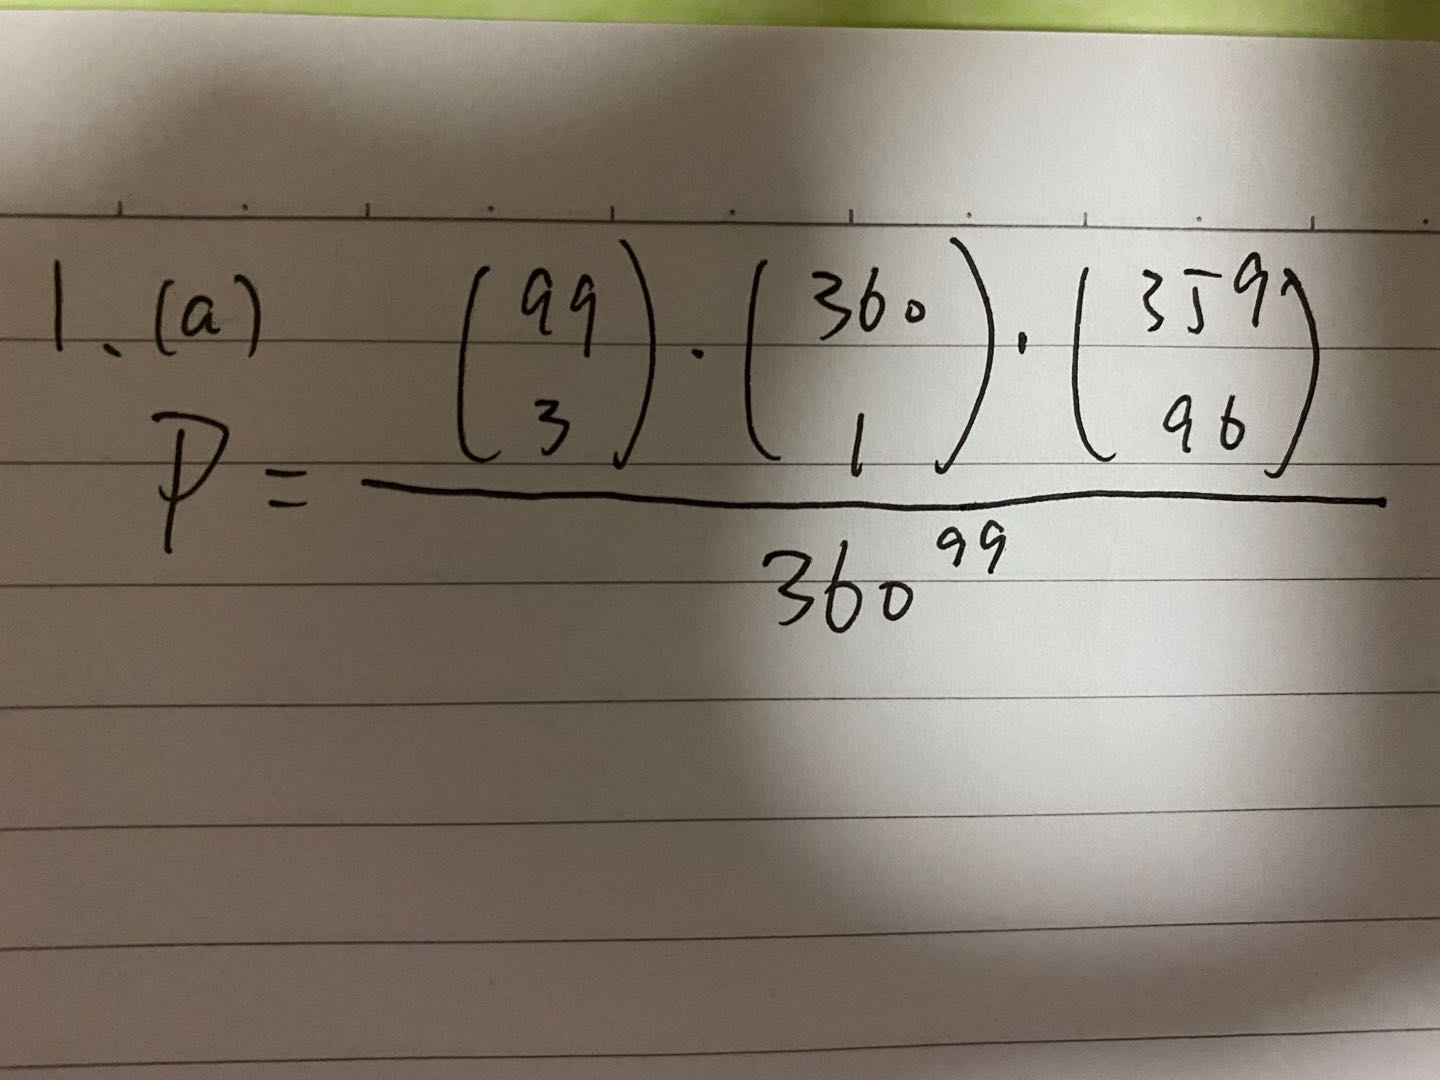 1. (a)
P = \frac{\binom{99}{3} \cdot \binom{360}{1} \cdot \binom{359}{96}}{360^{99}}